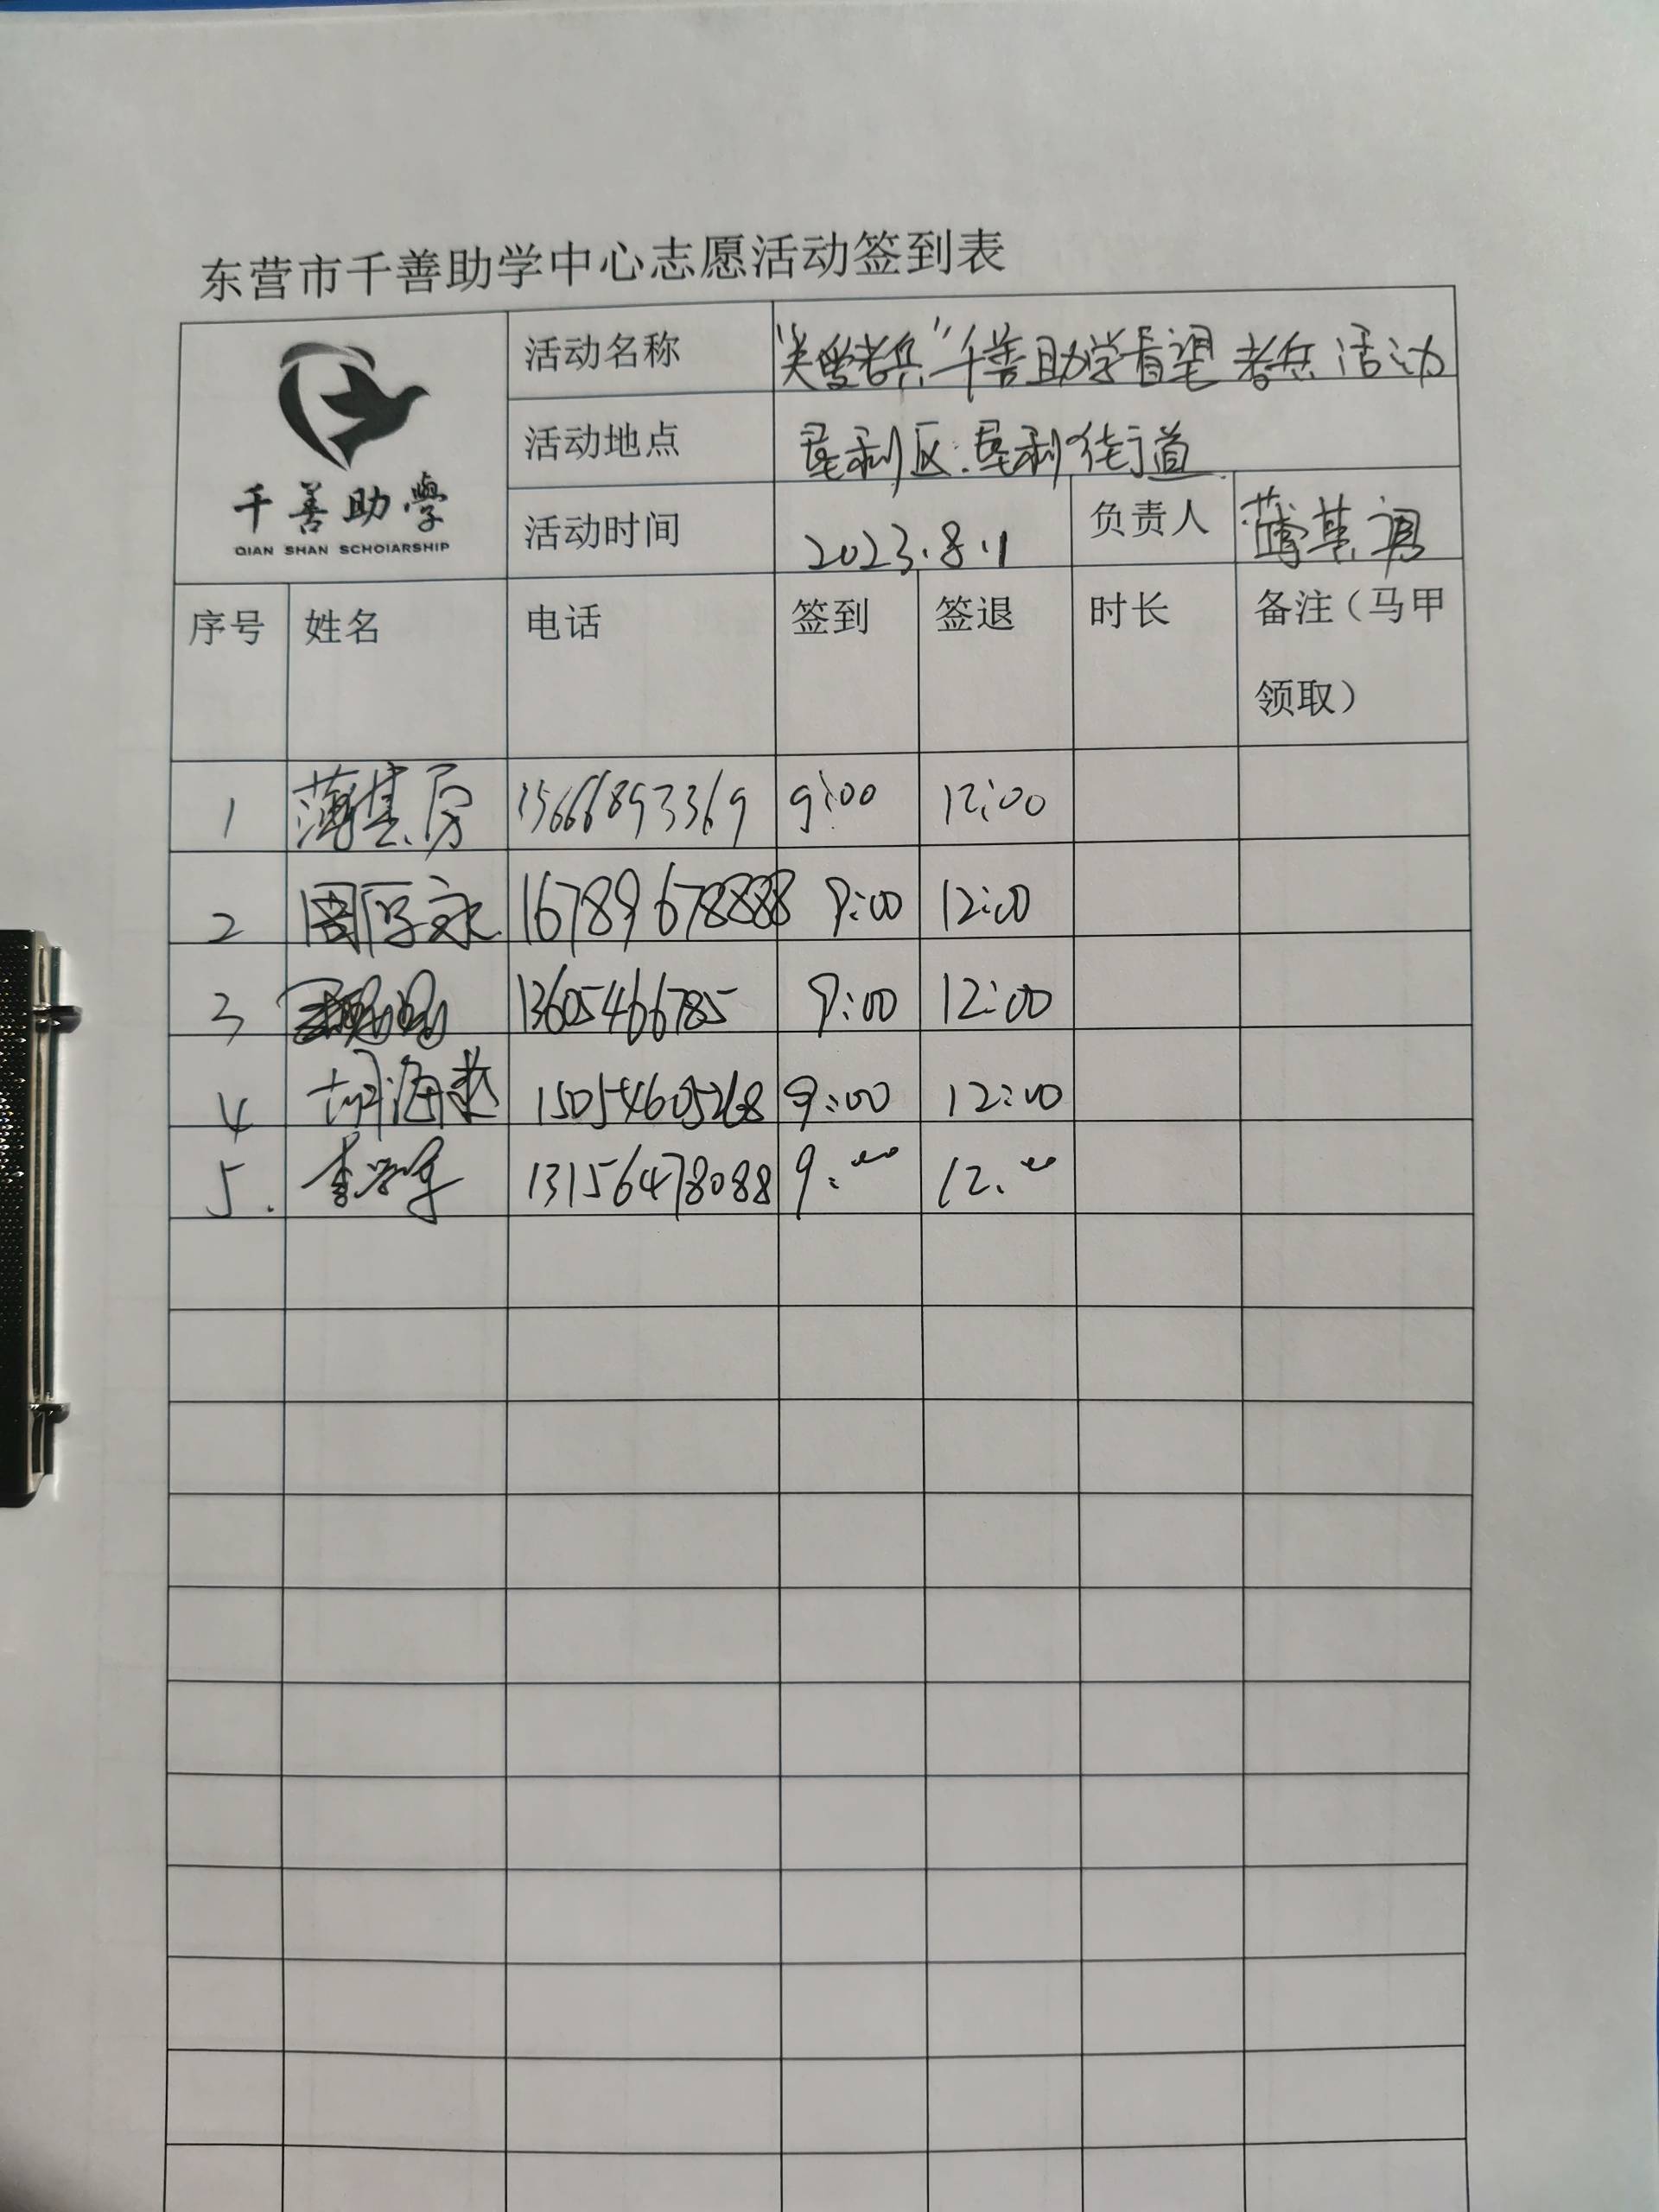 东营市千善助学中心志愿活动签到表
千善助學
QIAN SHAN SCHOIARSHIP
活动名称 "关爱老兵"千善助学看望老兵活动
活动地点 垦利区垦利街道
活动时间 2023.8.1 负责人 薄其
序号 姓名 电话 签到 签退 时长 备注（马甲
领取）
1 薄其房 15666893369 9:00 12:00
2 周厚永 16789678888 9:00 12:00
3 13605466785 9:00 12:00
4 胡海燕 15054605268 9:00 12:00
5. 李学军 13156478088 9:00 12:00